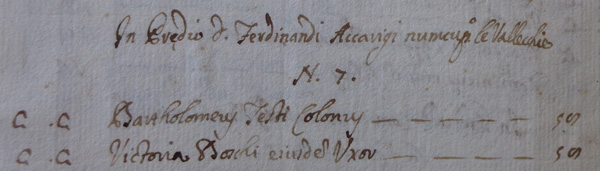 In Predio d. Ferdinandi Accarigi nuncup. le Vallechie
N. 7.
C . C Bartholomeus Testi Colonus — — — — 50
C . C Victoria Boschi eiusdē Uxor — — — — 50